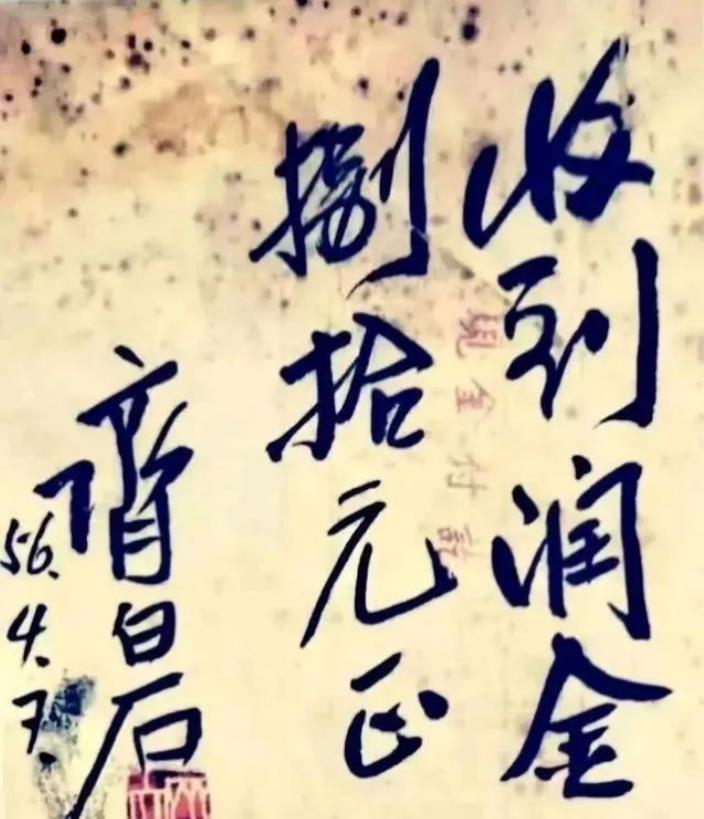 收到润金
捌拾元正
现金付讫
齐白石
56.4.7.